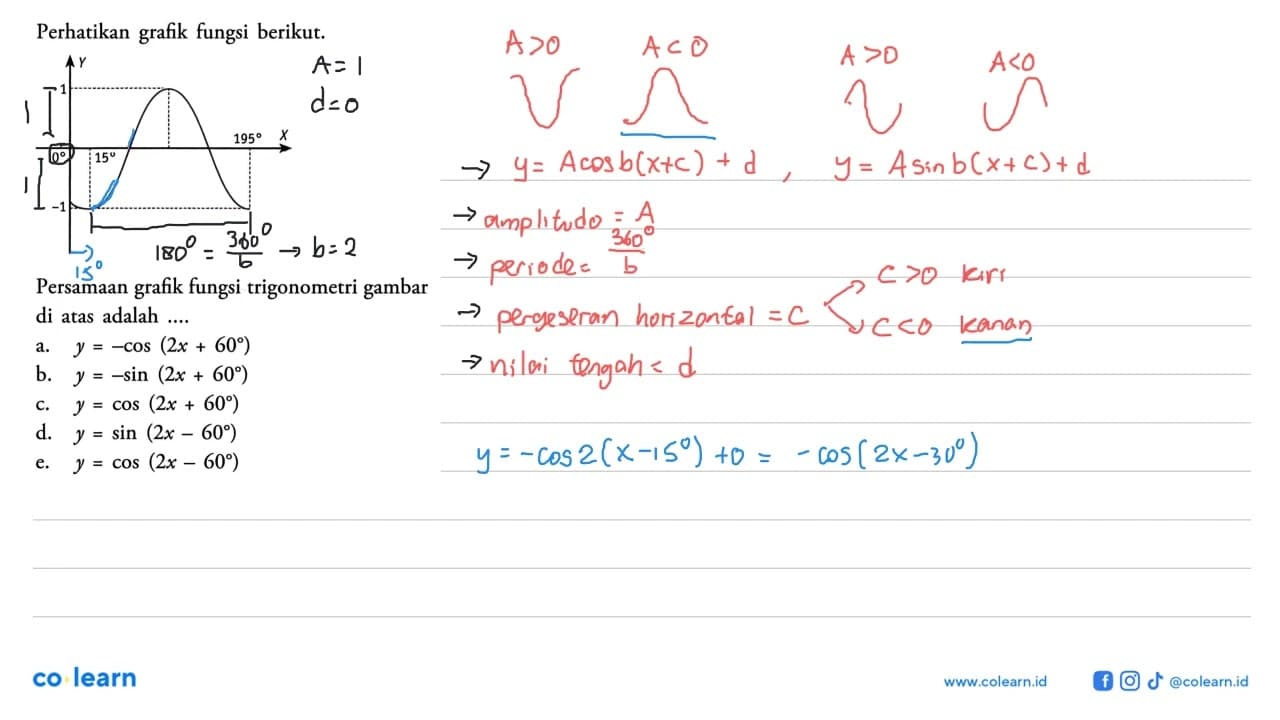 Perhatikan grafik fungsi berikut.
Y
1
0°
15°
195°
X
-1
1
1
A = 1
d = 0
15°
180° = 360°/b → b = 2
Persamaan grafik fungsi trigonometri gambar
di atas adalah ....
a. y = –cos (2x + 60°)
b. y = –sin (2x + 60°)
c. y = cos (2x + 60°)
d. y = sin (2x – 60°)
e. y = cos (2x – 60°)
A>0 A<0 A>0 A<0
→ y = A cos b(x+c) + d , y = A sin b(x+c)+d
→ amplitudo = A
→ periode = 360°/b
→ pergeseran horizontal = c
c>0 kiri
c<0 kanan
→ nilai tengah = d
y = -cos 2(x-15°) +0 = -cos(2x-30°)
co learn
www.colearn.id
@colearn.id